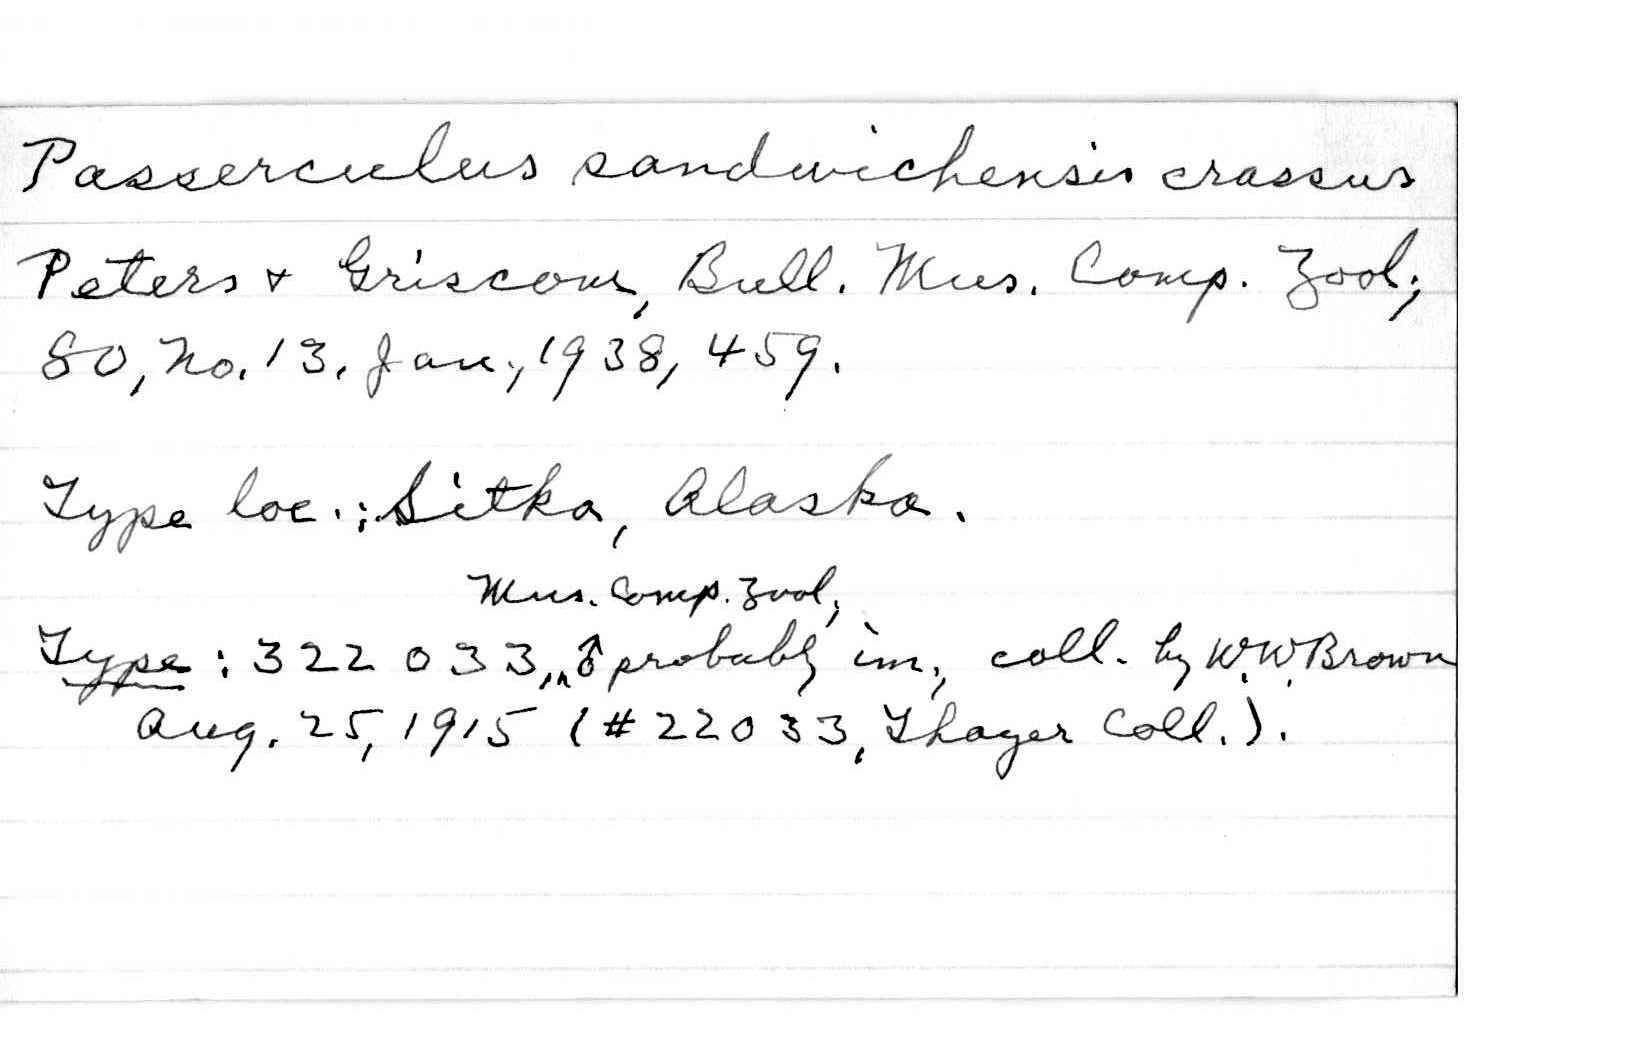 Passerculus sandwichensis crassus
Peters & Griscom, Bull. Mus. Comp. Zool.,
80, No. 13, Jan., 1938, 459.
Type loc.: Sitka, Alaska.
Mus. Comp. Zool.,
Type: 322 033, ♂ probably im., coll. by W.W. Brown
Aug. 25, 1915 (#22033, Thayer Coll.).